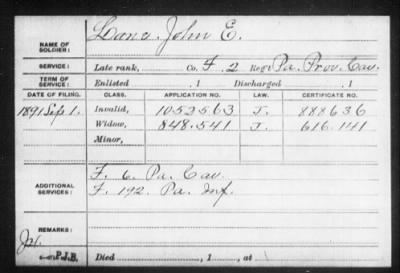 NAME OF SOLDIER: Long, John E.
SERVICE: Late rank, Co. F. 2 Reg't Pa. Prov. Cav.
TERM OF SERVICE: Enlisted , 1 Discharged , 1
DATE OF FILING. CLASS. APPLICATION NO. LAW. CERTIFICATE NO.
1891 Sep. 1. Invalid, 1052563 J. 888636
Widow, 848.541 J. 616.141
Minor,
ADDITIONAL SERVICES: F. 6. Pa. Cav.
F. 192. Pa. Inf.
REMARKS:
P.I.B.
Died , 1 , at